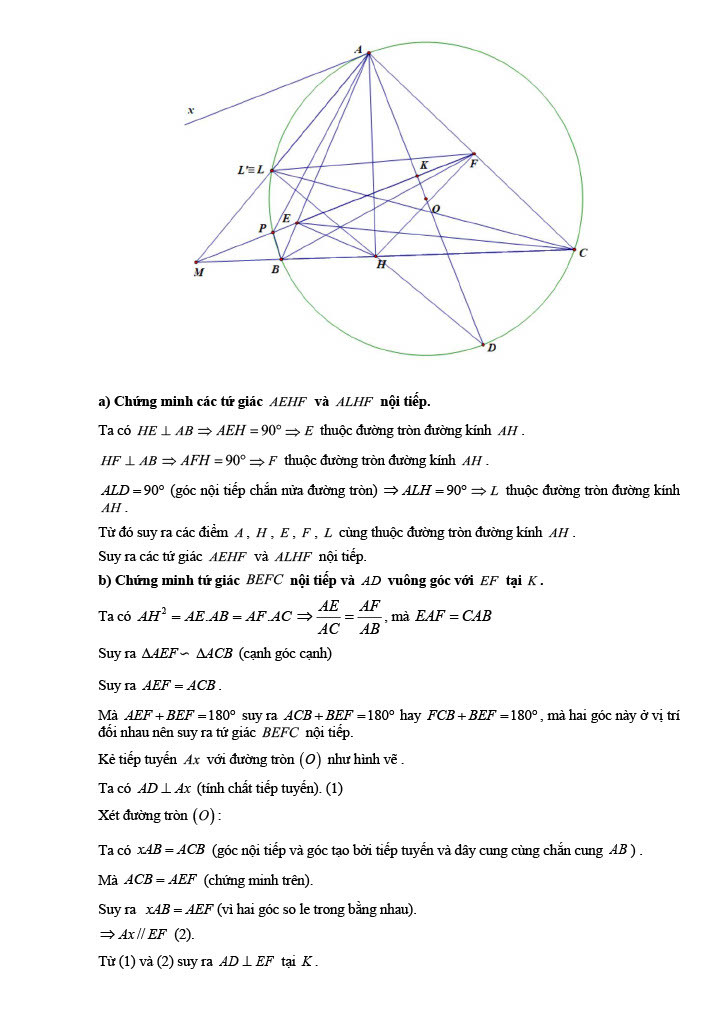 A
x
L'≡L
K
F
O
P
E
M
B
H
C
D
a) Chứng minh các tứ giác AEHF và ALHF nội tiếp.
Ta có HE ⊥ AB ⇒ AEH = 90° ⇒ E thuộc đường tròn đường kính AH .
HF ⊥ AB ⇒ AFH = 90° ⇒ F thuộc đường tròn đường kính AH .
ALD = 90° (góc nội tiếp chắn nửa đường tròn) ⇒ ALH = 90° ⇒ L thuộc đường tròn đường kính
AH .
Từ đó suy ra các điểm A , H , E , F , L cùng thuộc đường tròn đường kính AH .
Suy ra các tứ giác AEHF và ALHF nội tiếp.
b) Chứng minh tứ giác BEFC nội tiếp và AD vuông góc với EF tại K .
Ta có AH² = AE.AB = AF.AC ⇒ AE/AC = AF/AB , mà EAF = CAB
Suy ra ΔAEF ∽ ΔACB (cạnh góc cạnh)
Suy ra AEF = ACB .
Mà AEF + BEF = 180° suy ra ACB + BEF = 180° hay FCB + BEF = 180° , mà hai góc này ở vị trí
đối nhau nên suy ra tứ giác BEFC nội tiếp.
Kẻ tiếp tuyến Ax với đường tròn (O) như hình vẽ .
Ta có AD ⊥ Ax (tính chất tiếp tuyến). (1)
Xét đường tròn (O) :
Ta có xAB = ACB (góc nội tiếp và góc tạo bởi tiếp tuyến và dây cung cùng chắn cung AB ) .
Mà ACB = AEF (chứng minh trên).
Suy ra xAB = AEF (vì hai góc so le trong bằng nhau).
⇒ Ax // EF (2).
Từ (1) và (2) suy ra AD ⊥ EF tại K .